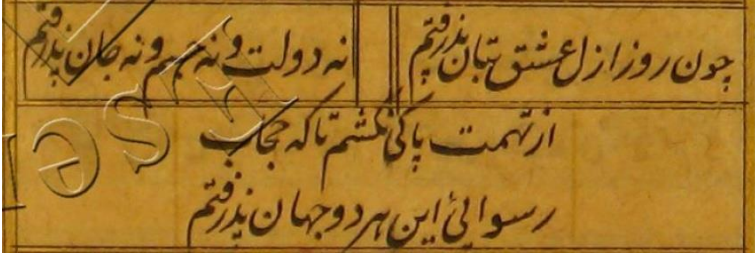 چون روز ازل عشق بتان پذرفتم
نه دولت و نه جسم و نه جان پذرفتم
از تهمت پاکی نکشم تا که حجاب
رسوائی این هر دو جهان پذرفتم